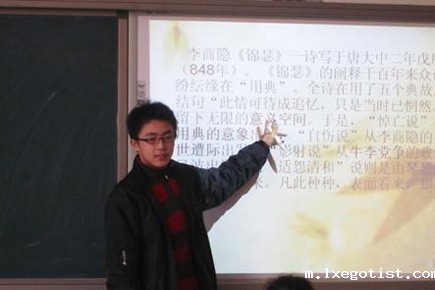 李商隐《锦瑟》一诗写于唐大中二年戊
（848年）。《锦瑟》的阐释千百年来众
纷纭缘在“用典”。全诗在用了五个典故
结句“此情可待成追忆，只是当时已惘然
留下无限的意义空间。于是，“悼亡说”
用典的意象 “自伤说”从李商隐
世遭际出 影射说”从牛李党争的
适怨清和”说则是由
来。凡此种种，表面看来，
m.lxegotist.com